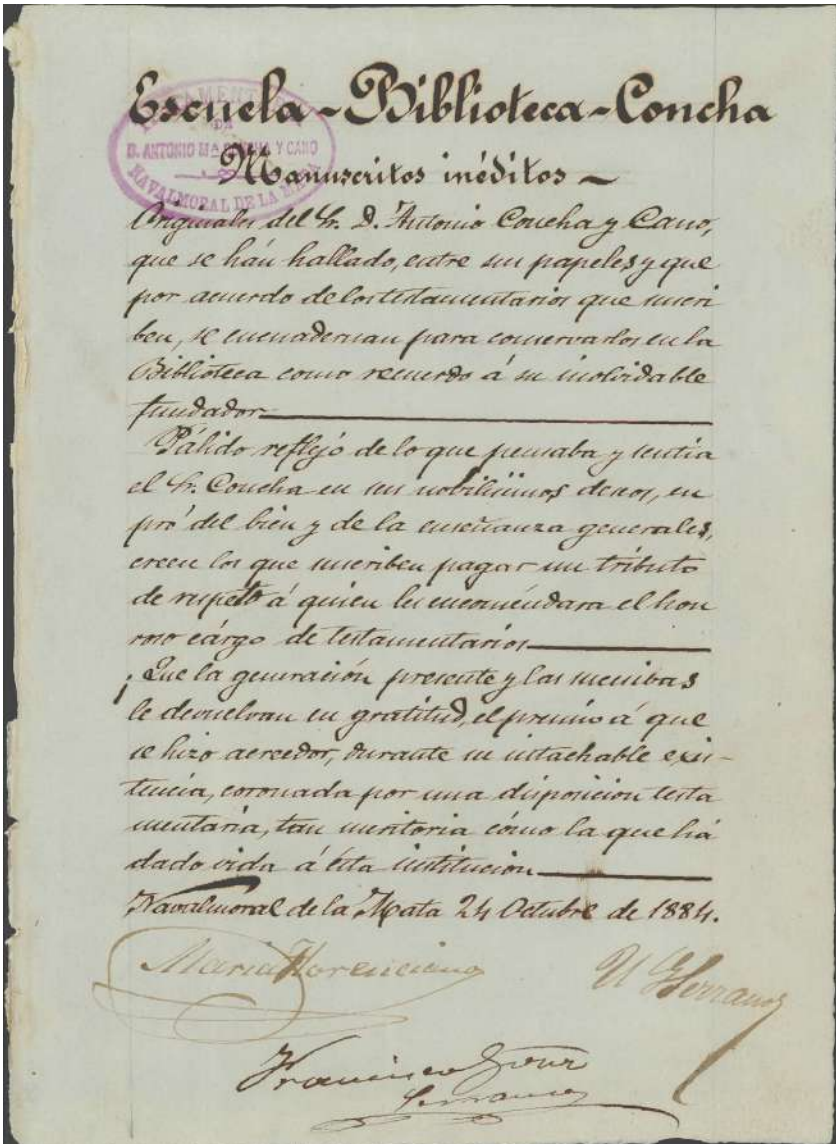 Escuela-Biblioteca-Concha
TESTAMENTARIA
DE
D. ANTONIO Mª CONCHA Y CANO
NAVALMORAL DE LA MATA
Manuscritos inéditos-
Originales del Sr. D. Antonio Concha y Cano,
que se hán hallado, entre sus papeles y que
por acuerdo de los testamentarios que suscri
ben, se encuadernan para conservarlos en la
Biblioteca como recuerdo á su inolvidable
fundador
Pálido reflejo de lo que pensaba y sentia
el Sr. Concha en sus nobilisimos deseos, en
pró del bien y de la enseñanza generales,
creen los que suscriben pagar un tributo
de respeto á quien les encoméndara el hon
roso cárgo de testamentarios
¡Que la generación presente y las sucesivas
le devuelvan en gratitud, el premio á que
se hizo acreedor, durante su intachable exis-
tencia, coronada por una disposicion testa
mentaria, tan meritoria cómo la que há
dado vida á ésta institucion
Navalmoral de la Mata 24 Octubre de 1884.
Maria Florenciano
U G Serrano
Francisco Gonz
Serrano